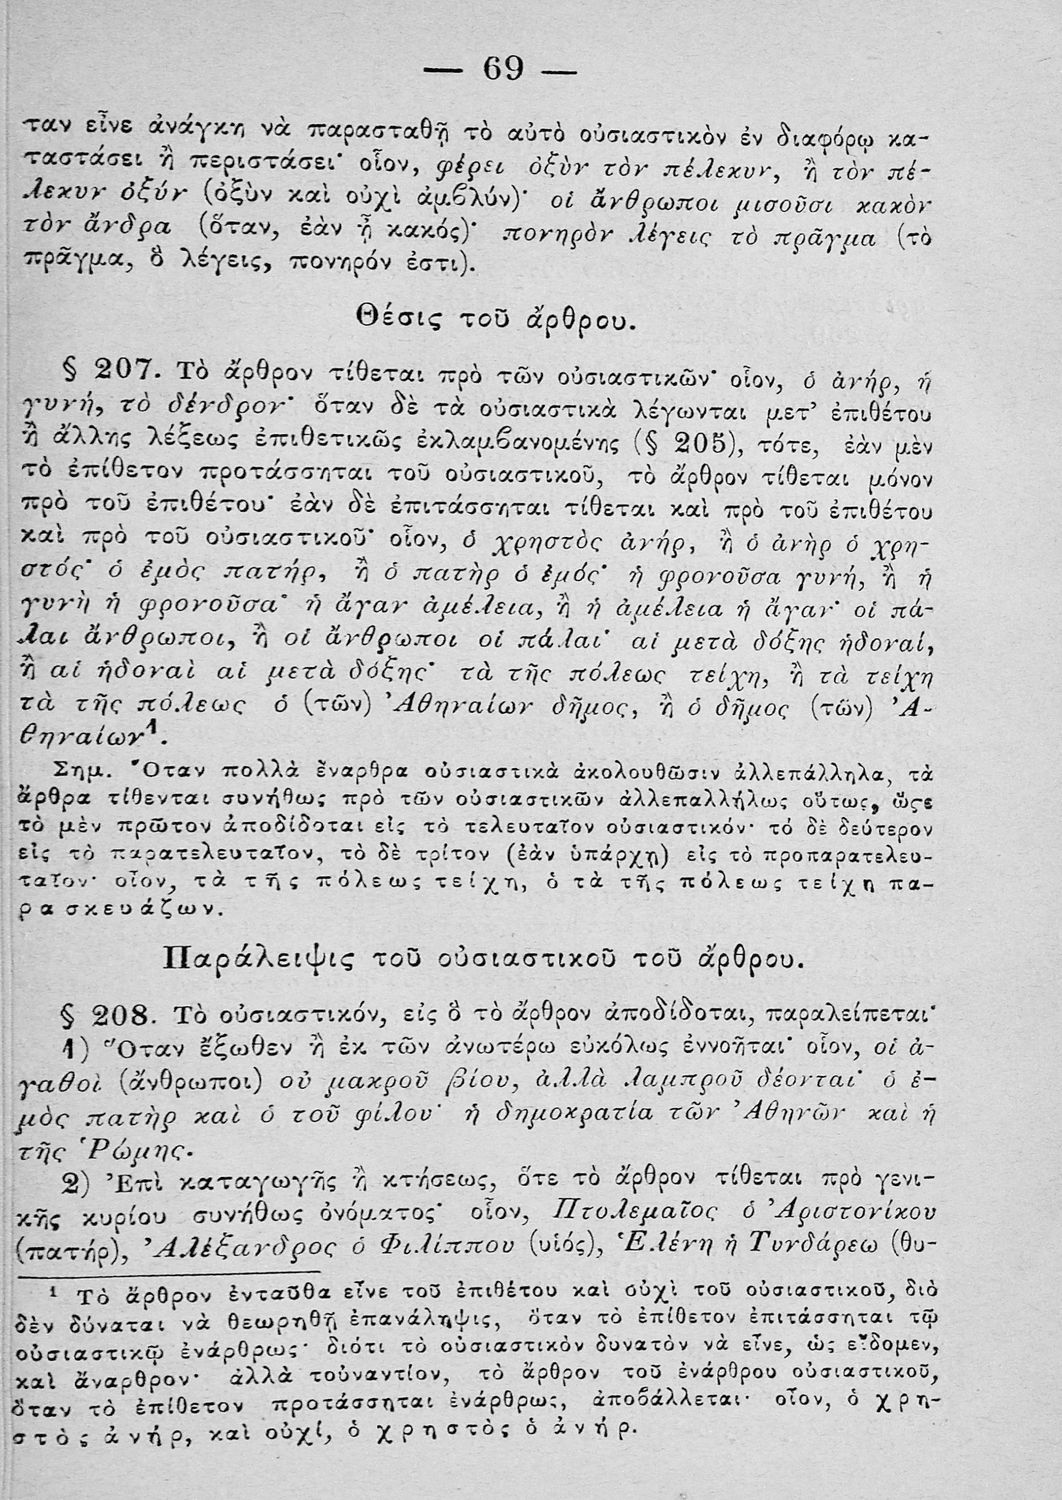 — 69 —
ταν εἶνε ἀνάγκη νὰ παρασταθῇ τὸ αὐτὸ οὐσιαστικὸν ἐν διαφόρῳ κα-
ταστάσει ἢ περιστάσει· οἷον, φέρει ὀξὺν τὸν πέλεκυν, ἢ τὸν πέ-
λεκυν ὀξύν (ὀξὺν καὶ οὐχὶ ἀμβλύν)· οἱ ἄνθρωποι μισοῦσι κακὸν
τὸν ἄνδρα (ὅταν, ἐὰν ᾖ κακός)· πονηρὸν λέγεις τὸ πρᾶγμα (τὸ
πρᾶγμα, ὃ λέγεις, πονηρόν ἐστι).
Θέσις τοῦ ἄρθρου.
§ 207. Τὸ ἄρθρον τίθεται πρὸ τῶν οὐσιαστικῶν· οἷον, ὁ ἀνήρ, ἡ
γυνή, τὸ δένδρον· ὅταν δὲ τὰ οὐσιαστικὰ λέγωνται μετ' ἐπιθέτου
ἢ ἄλλης λέξεως ἐπιθετικῶς ἐκλαμβανομένης (§ 205), τότε, ἐὰν μὲν
τὸ ἐπίθετον προτάσσηται τοῦ οὐσιαστικοῦ, τὸ ἄρθρον τίθεται μόνον
πρὸ τοῦ ἐπιθέτου· ἐὰν δὲ ἐπιτάσσηται τίθεται καὶ πρὸ τοῦ ἐπιθέτου
καὶ πρὸ τοῦ οὐσιαστικοῦ· οἷον, ὁ χρηστὸς ἀνήρ, ἢ ὁ ἀνὴρ ὁ χρη-
στός· ὁ ἐμὸς πατήρ, ἢ ὁ πατὴρ ὁ ἐμός· ἡ φρονοῦσα γυνή, ἢ ἡ
γυνὴ ἡ φρονοῦσα· ἡ ἄγαν ἀμέλεια, ἢ ἡ ἀμέλεια ἡ ἄγαν· οἱ πά-
λαι ἄνθρωποι, ἢ οἱ ἄνθρωποι οἱ πάλαι· αἱ μετὰ δόξης ἡδοναί,
ἢ αἱ ἡδοναὶ αἱ μετὰ δόξης· τὰ τῆς πόλεως τείχη, ἢ τὰ τείχη
τὰ τῆς πόλεως ὁ (τῶν) Ἀθηναίων δῆμος, ἢ ὁ δῆμος (τῶν) Ἀ-
θηναίων¹.
Σημ. Ὅταν πολλὰ ἔναρθρα οὐσιαστικὰ ἀκολουθῶσιν ἀλλεπάλληλα, τὰ
ἄρθρα τίθενται συνήθως πρὸ τῶν οὐσιαστικῶν ἀλλεπαλλήλως οὕτως, ὥϛε
τὸ μὲν πρῶτον ἀποδίδοται εἰς τὸ τελευταῖον οὐσιαστικόν· τό δὲ δεύτερον
εἰς τὸ παρατελευταῖον, τὸ δὲ τρίτον (ἐὰν ὑπάρχῃ) εἰς τὸ προπαρατελευ-
ταῖον· οἷον, τὰ τῆς πόλεως τείχη, ὁ τὰ τῆς πόλεως τείχη πα-
ρασκευάζων.
Παράλειψις τοῦ οὐσιαστικοῦ τοῦ ἄρθρου.
§ 208. Τὸ οὐσιαστικόν, εἰς ὃ τὸ ἄρθρον ἀποδίδοται, παραλείπεται·
1) Ὅταν ἔξωθεν ἢ ἐκ τῶν ἀνωτέρω εὐκόλως ἐννοῆται· οἷον, οἱ ἀ-
γαθοὶ (ἄνθρωποι) οὐ μακροῦ βίου, ἀλλὰ λαμπροῦ δέονται· ὁ ἐ-
μὸς πατὴρ καὶ ὁ τοῦ φίλου· ἡ δημοκρατία τῶν Ἀθηνῶν καὶ ἡ
τῆς Ῥώμης.
2) Ἐπὶ καταγωγῆς ἢ κτήσεως, ὅτε τὸ ἄρθρον τίθεται πρὸ γενι-
κῆς κυρίου συνήθως ὀνόματος· οἷον, Πτολεμαῖος ὁ Ἀριστονίκου
(πατήρ), Ἀλέξανδρος ὁ Φιλίππου (υἱός), Ἑλένη ἡ Τυνδάρεω (θυ-
¹ Τὸ ἄρθρον ἐνταῦθα εἶνε τοῦ ἐπιθέτου καὶ οὐχὶ τοῦ οὐσιαστικοῦ, διὸ
δὲν δύναται νὰ θεωρηθῇ ἐπανάληψις, ὅταν τὸ ἐπίθετον ἐπιτάσσηται τῷ
οὐσιαστικῷ ἐνάρθρως· διότι τὸ οὐσιαστικὸν δυνατὸν νὰ εἶνε, ὡς εἴδομεν,
καὶ ἄναρθρον· ἀλλὰ τοὐναντίον, τὸ ἄρθρον τοῦ ἐνάρθρου οὐσιαστικοῦ,
ὅταν τὸ ἐπίθετον προτάσσηται ἐνάρθρως, ἀποβάλλεται· οἷον, ὁ χρη-
στὸς ἀνήρ, καὶ οὐχί, ὁ χρηστὸς ὁ ἀνήρ.